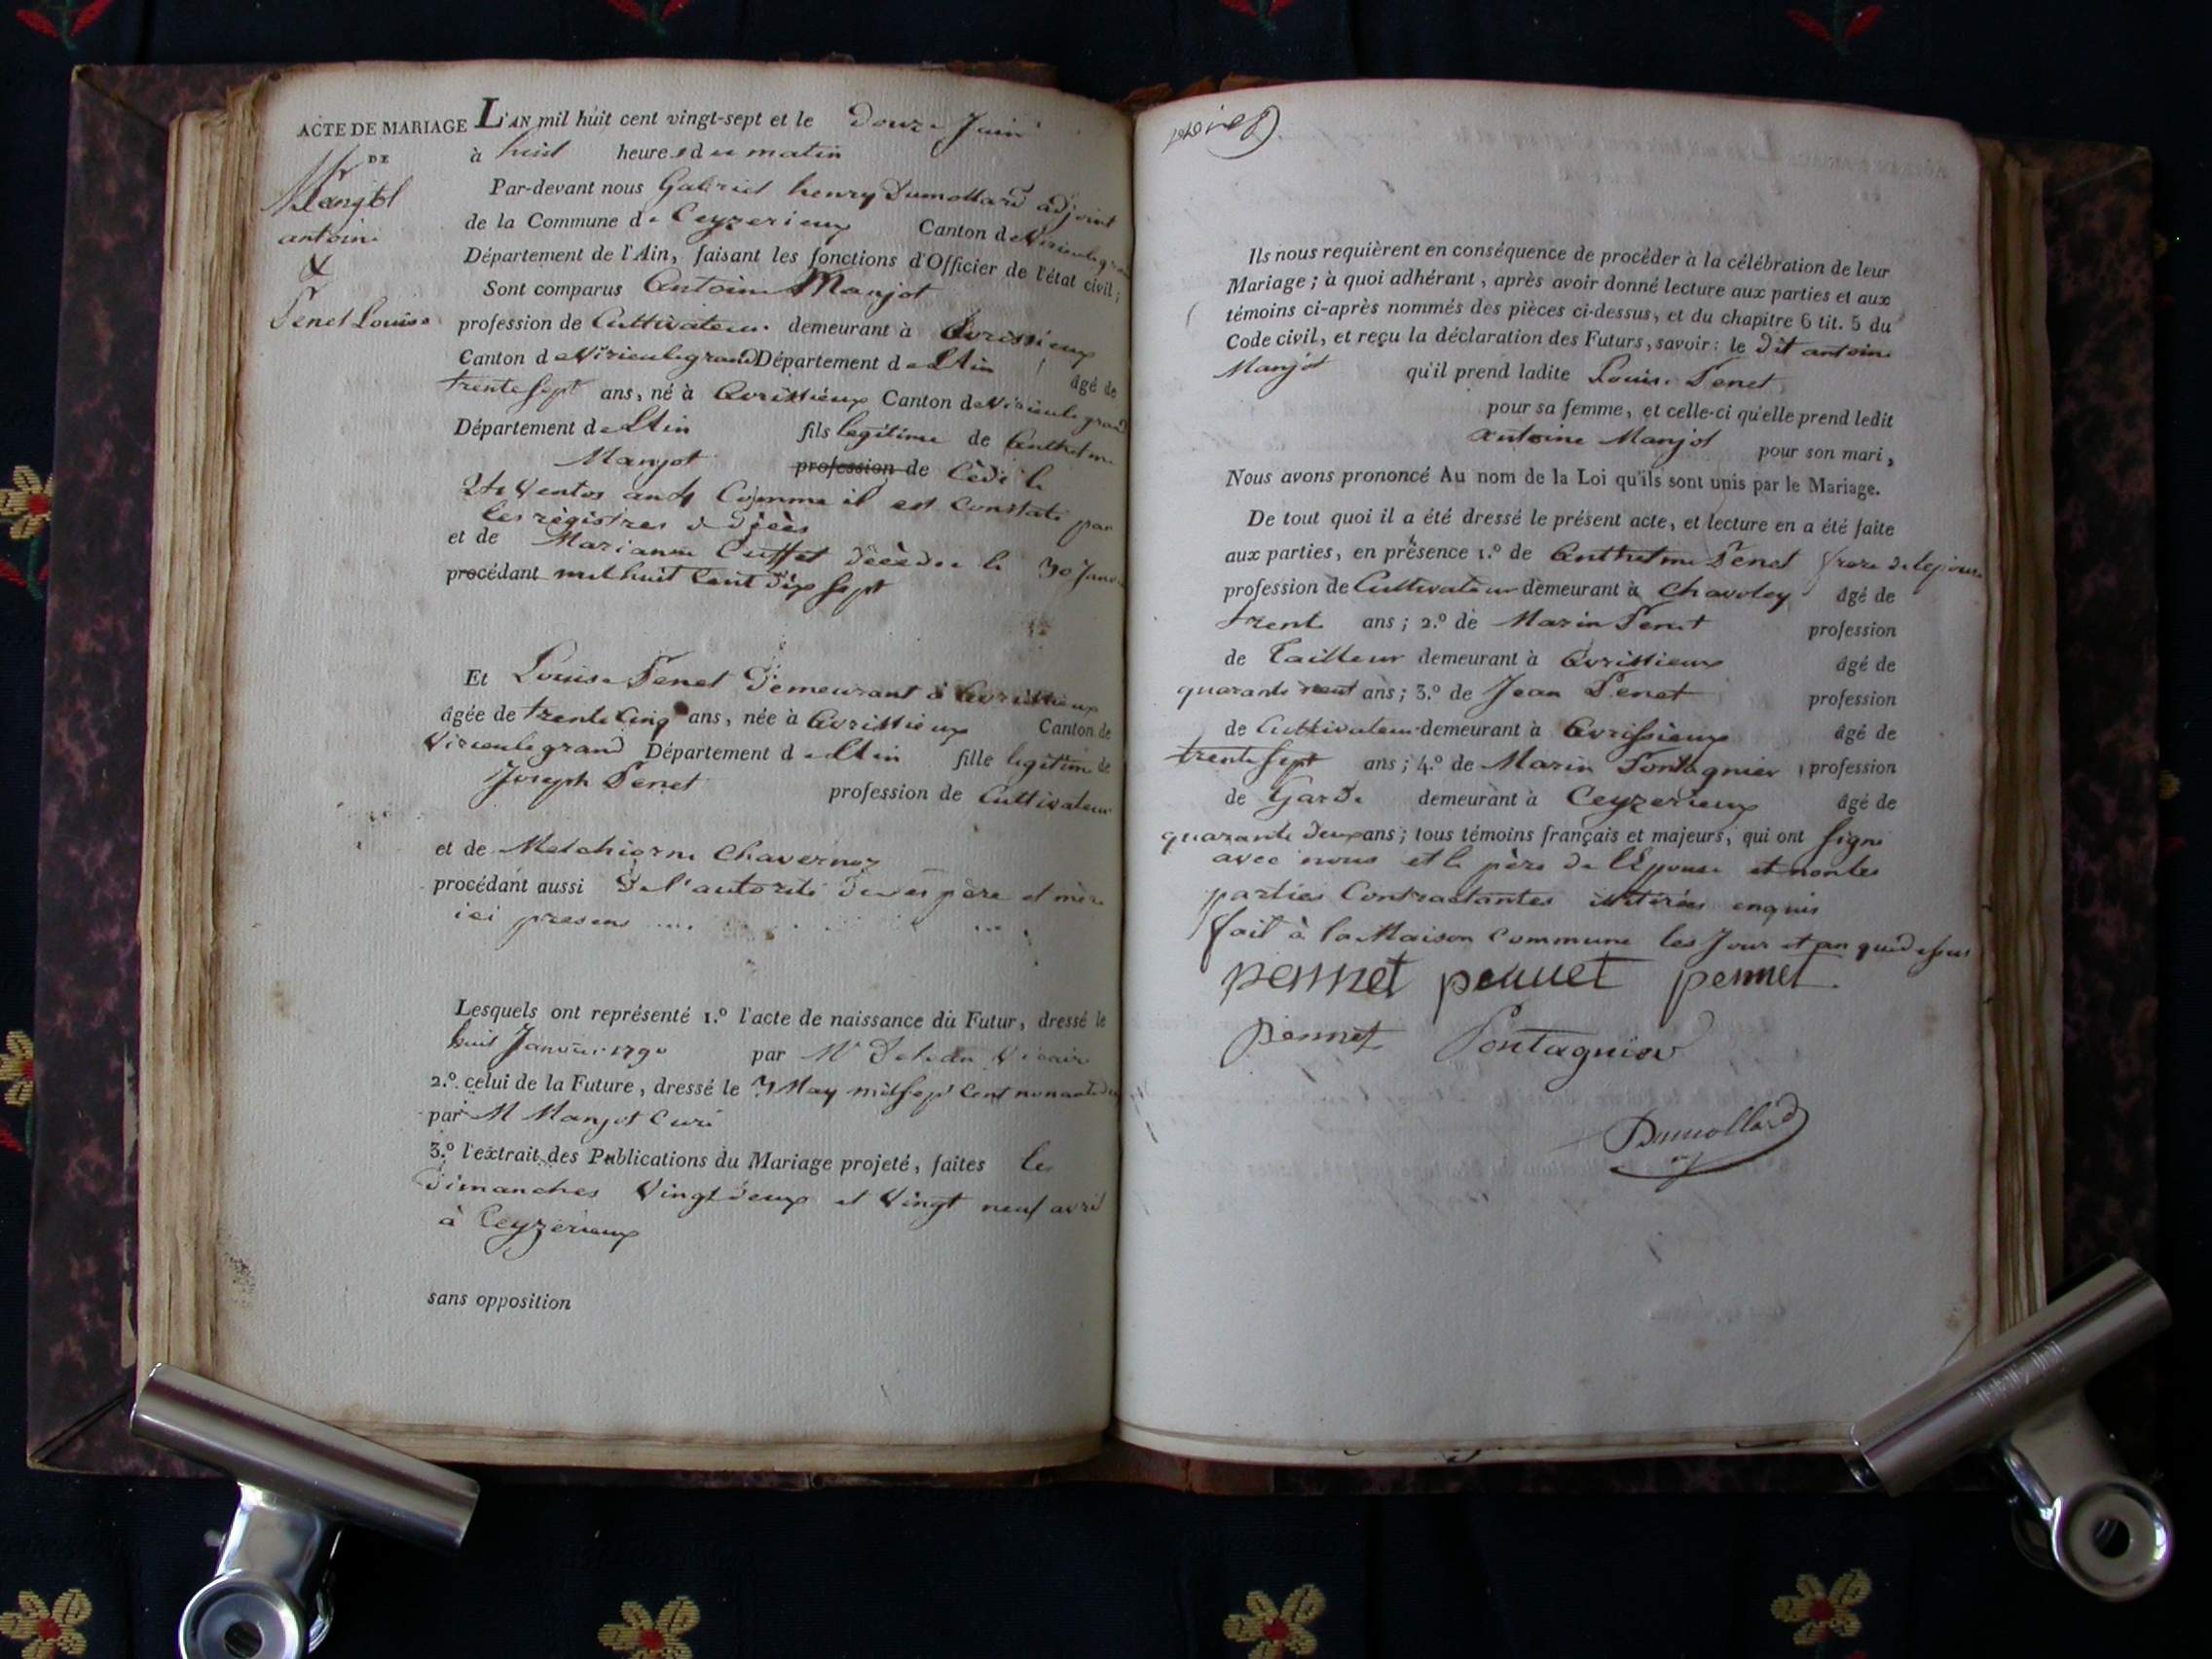 ACTE DE MARIAGE
DE
Mangot
antoine
&
Penet Louise
L'AN mil huit cent vingt-sept et le douze Juin
à huit heures du matin
Par-devant nous Gabriel henry Dumollard adjoint
de la Commune de Ceyzerieux Canton de Virieu le grand
Département de l'Ain, faisant les fonctions d'Officier de l'état civil;
Sont comparus Antoine Manjot
profession de Cultivateur demeurant à Avrissieux
Canton de Virieu le grand Département de L'Ain âgé de
trente sept ans, né à Avrissieux Canton de Virieu le grand
Département de L'Ain fils légitime de Anthelme
Manjot profession de Cédé le
24 Ventos an 4 Comme il est Constaté par
les régistres
et de Marianne Cuffet décédée le 30 Janv
procédant mil huit Cent dix sept
Et Louise Penet demeurant à Avrissieux
âgée de trente cinq ans, née à Avrissieux Canton de
Virieu le grand Département de L'Ain fille légitime de
Joseph Penet profession de Cultivateur
et de Melchiorne Chavernoz
procédant aussi de l'autorité de ses père et mère
ici presens ....
Lesquels ont représenté 1.º l'acte de naissance du Futur, dressé le
huit Janvier 1790 par Mr Vicaire
2.º celui de la Future, dressé le 3 May mil sept Cent nonante
par M Manjot Curé
3.º l'extrait des Publications du Mariage projeté, faites les
dimanches Vingt deux et Vingt neuf avril
à Ceyzérieux
sans opposition
Ils nous requièrent en conséquence de procéder à la célébration de leur
Mariage; à quoi adhérant, après avoir donné lecture aux parties et aux
témoins ci-après nommés des pièces ci-dessus, et du chapitre 6 tit. 5 du
Code civil, et reçu la déclaration des Futurs, savoir: le dit antoine
Manjot qu'il prend ladite Louise Penet
pour sa femme, et celle-ci qu'elle prend ledit
antoine Manjot pour son mari,
Nous avons prononcé Au nom de la Loi qu'ils sont unis par le Mariage.
De tout quoi il a été dressé le présent acte, et lecture en a été faite
aux parties, en présence 1.º de Anthelme Penet frere de lepouse
profession de Cultivateur demeurant à Chavoley âgé de
trente ans; 2.º de Marin Penet profession
de Tailleur demeurant à Avrissieux âgé de
quarante neuf ans; 3.º de Jean Penet profession
de Cultivateur demeurant à Avrissieux âgé de
trente sept ans; 4.º de Marin Pontagnier profession
de Garde demeurant à Ceyzerieux âgé de
quarante deux ans; tous témoins français et majeurs, qui ont signé
avec nous et le père de l'Epouse et non les
parties Contractantes illitérées enquis
fait à la Maison Commune les Jour et an que dessus
pennet pennet pennet
pennet Pontagnier
Dumollard